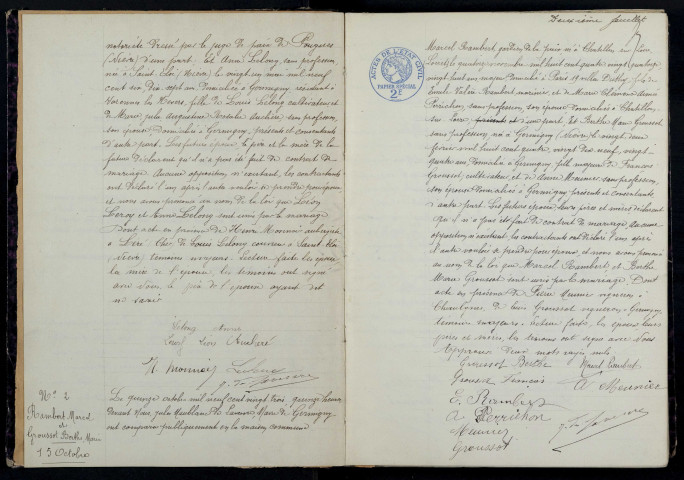 notoriété dressé par le juge de paix de Pougues
(Nièvre) d'une part. Et Anna Lelong, sans profession,
née à Saint Eloi (Nièvre) le vingt un mai mil neuf
cent six, dix sept ans, domiciliée à Germigny, résidant à
Varennes les Nevers, fille de Louis Lelong cultivateur et
de Marie Augustine Aucharé, sans profession,
son épouse domiciliés à Germigny, présents et consentants
d'autre part. Les futurs époux, le père et la mère de la
future déclarent qu'il n'a pas été fait de contrat de
mariage. Aucune opposition n'existant, les contractants
ont déclaré l'un après l'autre vouloir se prendre pour époux
et nous avons prononcé au nom de la loi que Léon
Leroy et Anna Lelong sont unis par le mariage.
Dont acte en présence de Henri Monnier
à et de Louis Lelong couvreur à Saint Eloi
(Nièvre) témoins majeurs. Lecture faite les époux
la mère de l'épouse, les témoins ont signé
avec Nous, le père de l'épouse ayant dit
ne savoir
Lelong Anna
Leroy Léon Aucharé
H. Monnier Lelong
N° 2
Rambert Marcel
et
Groussot Berthe Marie
15 Octobre
Le quinze octobre mil neuf cent vingt trois, quinze heures
devant Nous, Maire de Germigny
ont comparu publiquement en la maison commune
Deuxième feuillet
ACTES DE L'ÉTAT CIVIL
PAPIER SPÉCIAL
2F
Marcel Rambert, gardien de la paix, né à Chatillon sur Loire
(Loiret) le quatorze novembre mil huit cent quatre vingt quatorze,
vingt huit ans, domicilié à Paris, fils de
Emile Rambert, marinier, et de Marie Anne
Perrichon, sans profession, son épouse domiciliés à Chatillon
sur Loire présents d'une part. Et Berthe Marie Groussot,
sans profession, née à Germigny (Nièvre) le vingt deux
février mil huit cent quatre vingt dix neuf, vingt
quatre ans, domiciliée à Germigny, fille majeure de François
Groussot, cultivateur, et de Anne Meunier, sans profession,
son épouse domiciliés à Germigny présents et consentants
d'autre part. Les futurs époux, leurs pères et mères déclarent
qu'il n'a pas été fait de contrat de mariage. Aucune
opposition n'existant, les contractants ont déclaré l'un après
l'autre vouloir se prendre pour époux, et nous avons prononcé
au nom de la loi que Marcel Rambert et Berthe
Marie Groussot sont unis par le mariage. Dont
acte en présence de Pierre Meunier vigneron à
Chaulgnes, de Louis Groussot vigneron à Germigny,
témoins majeurs. Lecture faite, les époux, leurs
pères et mères, les témoins ont signé avec Nous
Approuvé deux mots rayés nuls
Groussot Berthe Marcel Rambert
Groussot François A Meunier
E. Rambert
A Perrichon
Meunier
Groussot